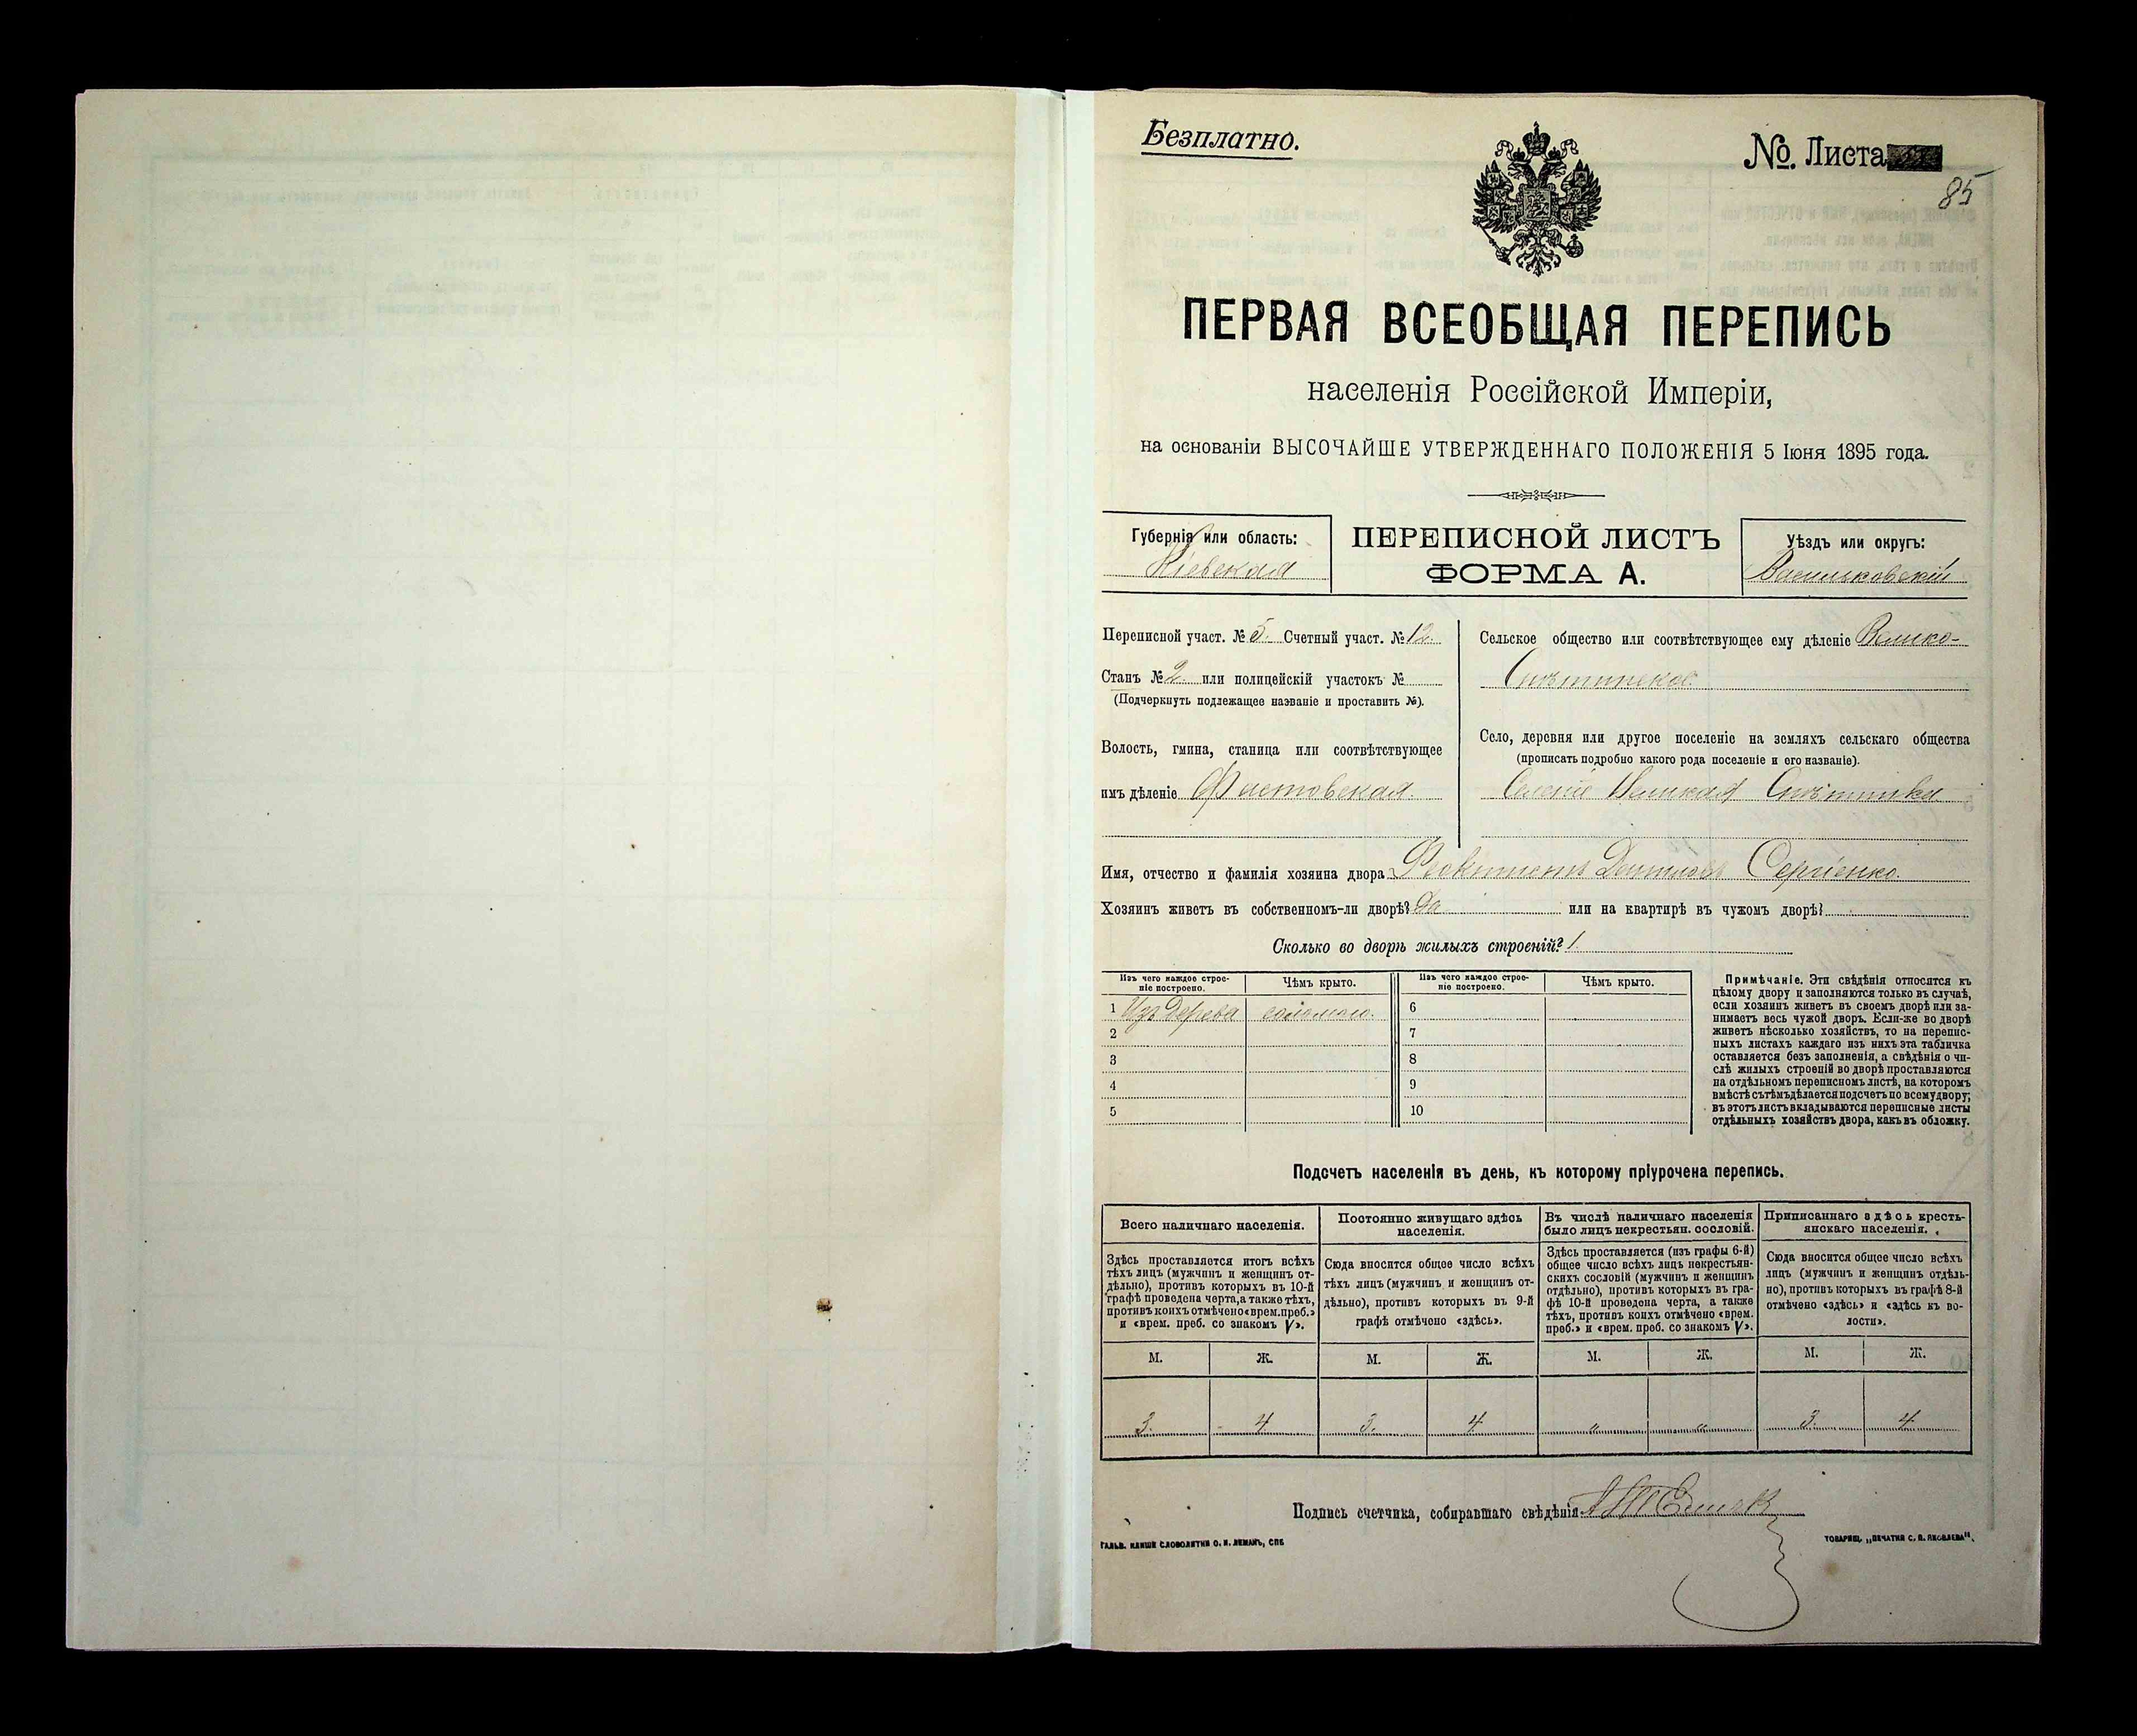 Безплатно.
№. Листа
85
ПЕРВАЯ ВСЕОБЩАЯ ПЕРЕПИСЬ
населенія Россійской Имперіи,
на основаніи ВЫСОЧАЙШЕ УТВЕРЖДЕННАГО ПОЛОЖЕНІЯ 5 Іюня 1895 года.
Губернія или область:
Кіевская
ПЕРЕПИСНОЙ ЛИСТЪ
ФОРМА А.
Уѣздъ или округъ:
Васильковскій
Переписной участ. № 5. Счетный участ. № 12.
Станъ № 2. или полицейскій участокъ №
(Подчеркнуть подлежащее названіе и проставить №).
Волость, гмина, станица или соотвѣтствующее
имъ дѣленіе Фастовская.
Сельское общество или соотвѣтствующее ему дѣленіе Велико-
Снѣтинское
Село, деревня или другое поселеніе на земляхъ сельскаго общества
(прописать подробно какого рода поселеніе и его названіе).
Селеніе Великая Снѣтинка
Имя, отчество и фамилія хозяина двора Сергіенко.
Хозяинъ живетъ въ собственномъ-ли дворѣ? Да или на квартирѣ въ чужомъ дворѣ?
Сколько во дворѣ жилыхъ строеній? 1
Изъ чего каждое строе-
ніе построено.
Чѣмъ крыто.
Изъ чего каждое строе-
ніе построено.
Чѣмъ крыто.
1 Изъ дерева соломою. 6
2 7
3 8
4 9
5 10
Примѣчаніе. Эти свѣдѣнія относятся къ
цѣлому двору и заполняются только въ случаѣ,
если хозяинъ живетъ въ своемъ дворѣ или за-
нимаетъ весь чужой дворъ. Если-же во дворѣ
живетъ нѣсколько хозяйствъ, то на перепис-
ныхъ листахъ каждаго изъ нихъ эта табличка
оставляется безъ заполненія, а свѣдѣнія о чи-
слѣ жилыхъ строеній во дворѣ проставляются
на отдѣльномъ переписномъ листѣ, на которомъ
вмѣстѣ съ тѣмъ дѣлается подсчетъ по всему двору;
въ этотъ листъ вкладываются переписные листы
отдѣльныхъ хозяйствъ двора, какъ въ обложку.
Подсчетъ населенія въ день, къ которому пріурочена перепись.
Всего наличнаго населенія.
Здѣсь проставляется итогъ всѣхъ
тѣхъ лицъ (мужчинъ и женщинъ от-
дѣльно), противъ которыхъ въ 10-й
графѣ проведена черта, а также тѣхъ,
противъ коихъ отмѣчено «врем. преб.»
и «врем. преб. со знакомъ V».
Постоянно живущаго здѣсь
населенія.
Сюда вносится общее число всѣхъ
тѣхъ лицъ (мужчинъ и женщинъ от-
дѣльно), противъ которыхъ въ 9-й
графѣ отмѣчено «здѣсь».
Въ числѣ наличнаго населенія
было лицъ некрестьян. сословій.
Здѣсь проставляется (изъ графы 6-й)
общее число всѣхъ лицъ некрестьян-
скихъ сословій (мужчинъ и женщинъ
отдѣльно), противъ которыхъ въ гра-
фѣ 10-й проведена черта, а также
тѣхъ, противъ коихъ отмѣчено «врем.
преб.» и «врем. преб. со знакомъ V».
Приписаннаго здѣсь кресть-
янскаго населенія.
Сюда вносится общее число всѣхъ
лицъ (мужчинъ и женщинъ отдѣль-
но), противъ которыхъ въ графѣ 8-й
отмѣчено «здѣсь» и «здѣсь къ во-
лости».
М. Ж. М. Ж. М. Ж. М. Ж.
3. 4 3. 4 " " 3. 4
Подпись счетчика, собиравшаго свѣдѣнія
ГАЛЬВ. КЛИШЕ СЛОВОЛИТНИ О. И. ЛЕМАНЪ, СПБ
ТОВАРИЩ. „ПЕЧАТНЯ С. П. ЯКОВЛЕВА".